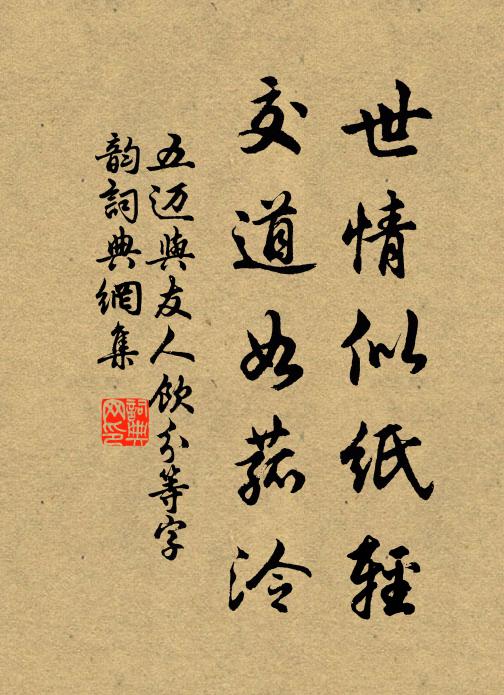 世情似紙輕
交道如冷
五迈與友人飲分等字
韵詞典網集
詞典
网印